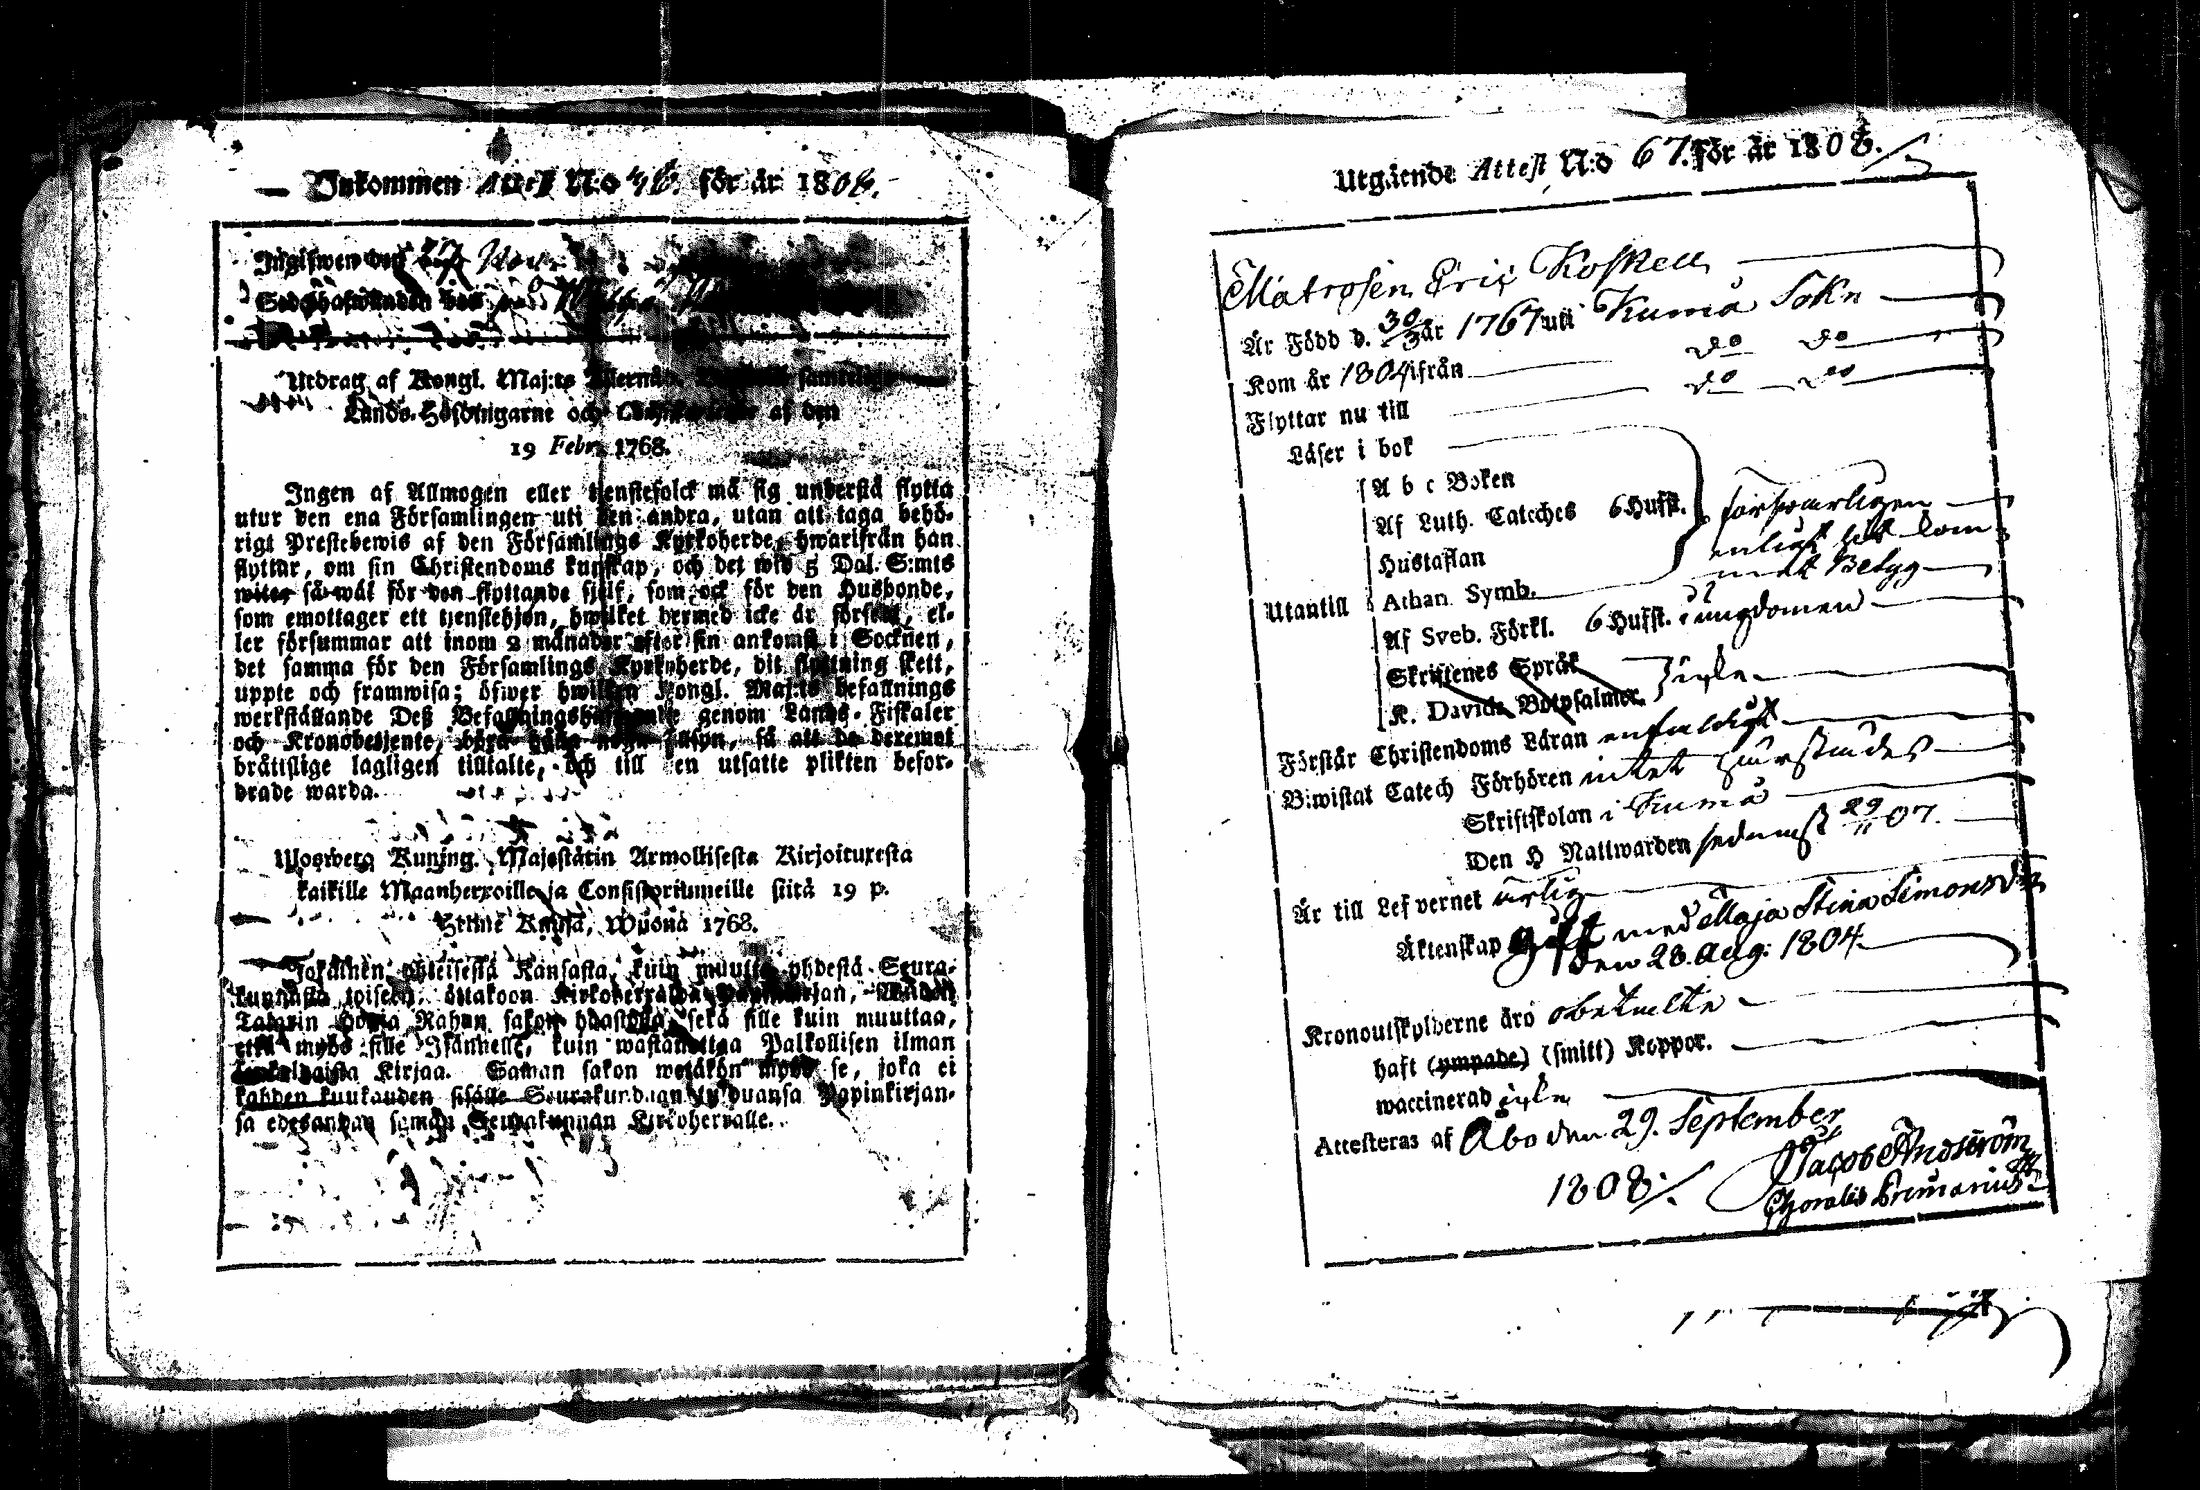 Inkommen Attest N:o 48. för år 1808.
Ingifwen den Nov.
Utdrag af Kongl. Maj:ts samtelige
Lands-Höfdingarne och af den
19 Febr. 1768.
Ingen af Allmogen eller tjenstefolck må sig understå flytta
utur den ena Församlingen uti den andra, utan att taga behö-
rigt Prestebewis af den Församlings Kyrkoherde, hwarifrån han
flyttar, om sin Christendoms kunskap, och det wid 5 Dal. S:mts
wites så wäl för den flyttande sjelf, som ock för den Husbonde,
som emottager ett tjenstehjon, hwilket hermed icke är försedt, el-
ler försummar att inom 2 månader efter sin ankomst i Socknen,
det samma för den Församlings Kyrkoherde, dit flyttning skett,
uppte och framwisa; öfwer hwilken Kongl. Maj:ts befallnings
werkställande Deß Befallningshafwande genom Lands-Fiskaler
och Kronobetjente, böra hålla noga tillsyn, så att de deremot
bråttslige lagligen tilltalte, och till den utsatte plikten befor-
drade warda.
Ulosweto Kuning. Majestätin Armollisesta Kirjoituxesta
kaikille Maanherroille ja Consistoriumeille siitä 19 p.
Helmi Kuusa, Wuonna 1768.
Jokainen yhteisestä Kansasta, kuin muutta yhdestä Seura-
kunnasta toiseen, ottakoon Kirkoherralda Papinkirjan, Wiiden
Talarin Hopia Rahan sakon haastolla, sekä sille kuin muuttaa,
että myös sille Isännelle, kuin wastanottaa Palkollisen ilman
Kirjaa. Saman sakon wetäkön myös se, joka ei
kahden kuukauden sisälle Seurakundaan tulduansa Papinkirjan-
sa edesanna saman Seurakunnan Kirkoherralle.
Utgående Attest N:o 67. för år 1808.
Matrosen Eric Koskell
Är Född d. 30/3 år 1767 uti Kumå Sokn
Kom år 1804 ifrån do do
Flyttar nu till do do
Läser i bok
A b c Boken
Af Luth. Cateches 6 Hufst. försvarligen
Hustaflan enligt
Utantill Athan. Symb. Betyg
Af Sveb. Förkl. 6 Hufst. i ungdomen
Skriftenes Språk
K. Davids Botpsalmer. icke
Förstår Christendoms Läran enfaldigt
Biwistat Catech Förhören intet
Skriftskolan i Kumå
Den H Nattwarden sednast 29/11 07.
Är till Lefvernet ärlig
Äktenskap gift med Maja Stina Simonsdr
den 28. Aug: 1804
Kronoutskylderne äro obetalte
haft (ympade) (smitt) Koppor.
waccinerad icke
Attesteras af Åbo den 29. September
1808. Jacob Andström
Choralis Primarius